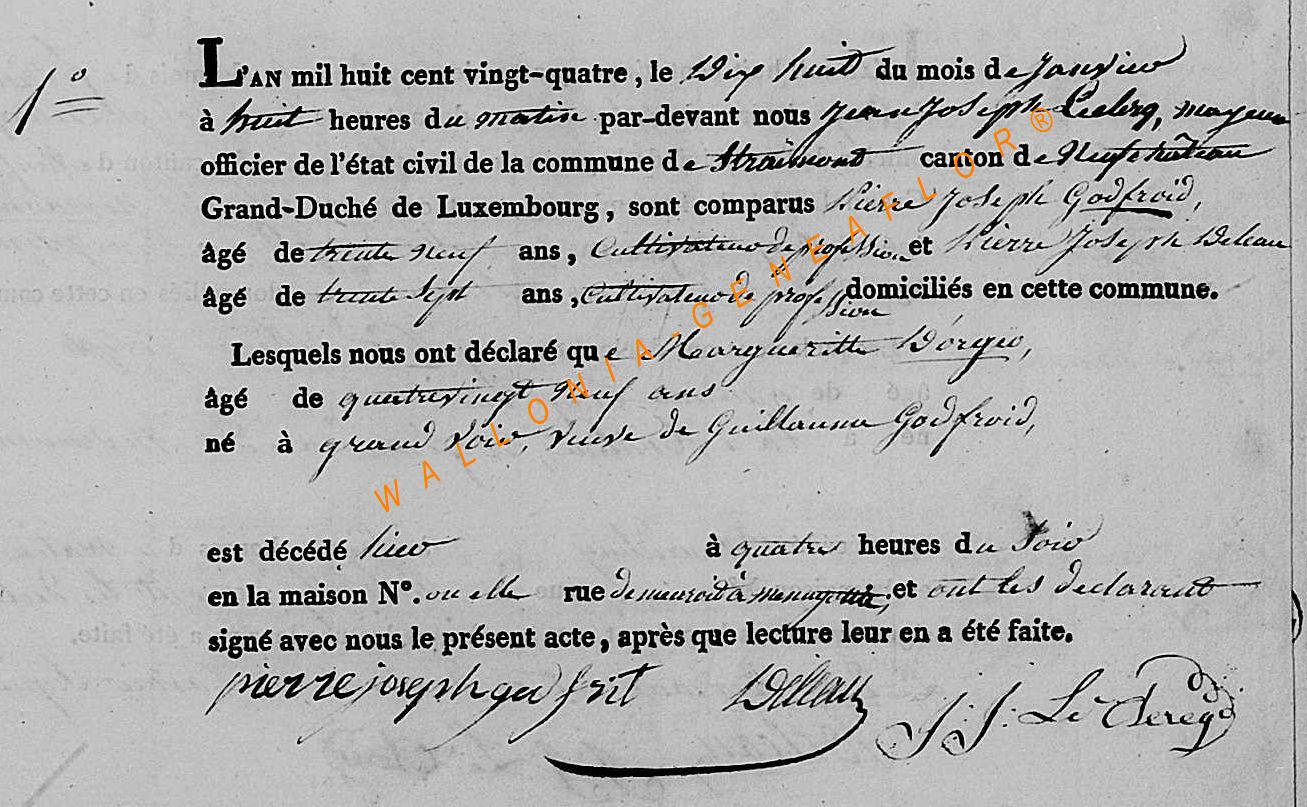 1º
L'AN mil huit cent vingt-quatre, le Dix huit du mois de Janvier
à huit heures du matin par-devant nous Jean Joseph Leclerq, mayeur
officier de l'état civil de la commune de Straimont canton de Neufchâteau
Grand-Duché de Luxembourg, sont comparus Pierre Joseph Godfroid,
âgé de trente neuf ans, Cultivateur de profession et Pierre Joseph Deleau
âgé de trente Sept ans, Cultivateur de profession domiciliés en cette commune.
Lesquels nous ont déclaré que Margueritte
âgé de quatrevingt Neuf ans
né à grand Voir, veuve de Guillaume Godfroid,
est décédé hier à quatre heures du Soir
en la maison Nº. ou elle rue demeuroit à et ont les declarant
signé avec nous le présent acte, après que lecture leur en a été faite.
pierre joseph godfrit Delleau J: J: Le
WALLONIA-GENEAFLOR®